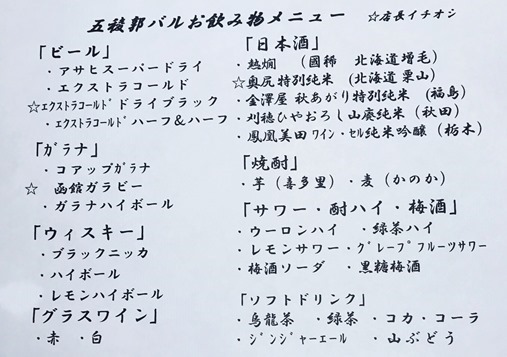 五稜郭バルお飲み物メニュー ☆店長イチオシ
「ビール」
・アサヒスーパードライ
・エクストラコールド
☆ｴｸｽﾄﾗｺｰﾙﾄﾞドライブラック
・ｴｸｽﾄﾗｺｰﾙﾄﾞハーフ＆ハーフ
「ｶﾞﾗﾅ」
・コアップｶﾞﾗﾅ
☆ 函館ガラビー
・ガラナハイボール
「ウィスキー」
・ブラックニッカ
・ハイボール
・レモンハイボール
「グラスワイン」
・赤 ・白
「日本酒」
・熱燗 （國稀 北海道増毛）
☆奥尻特別純米（北海道栗山）
・金澤屋 秋あがり特別純米（福島）
・刈穂ひやおろし山廃純米（秋田）
・鳳凰美田 ﾜｲﾝ・ｾﾙ純米吟醸（栃木）
「焼酎」
・芋（喜多里） ・麦（かのか）
「サワー・酎ハイ・梅酒」
・ウーロンハイ ・緑茶ハイ
・レモンサワー・ｸﾞﾚｰﾌﾟﾌﾙｰﾂサワー
・梅酒ソーダ ・黒糖梅酒
「ソフトドリンク」
・烏龍茶 ・緑茶 ・コカ・コーラ
・ｼﾞﾝｼﾞｬｰエール ・山ぶどう